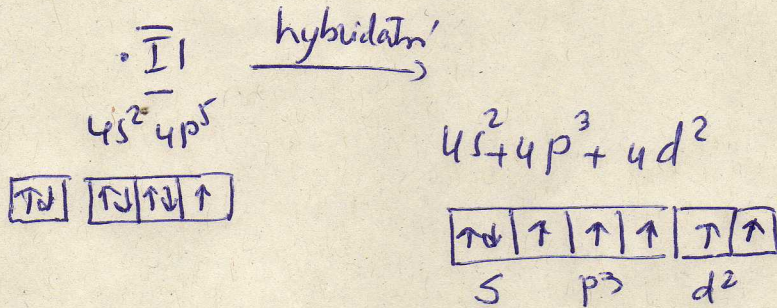 ·I̅|
hybridatní
4s² 4p⁵
4s²+4p³+4d²
↑↓ ↑↓ ↑↓ ↑
↑↓ ↑ ↑ ↑ ↑ ↑
s p³ d²